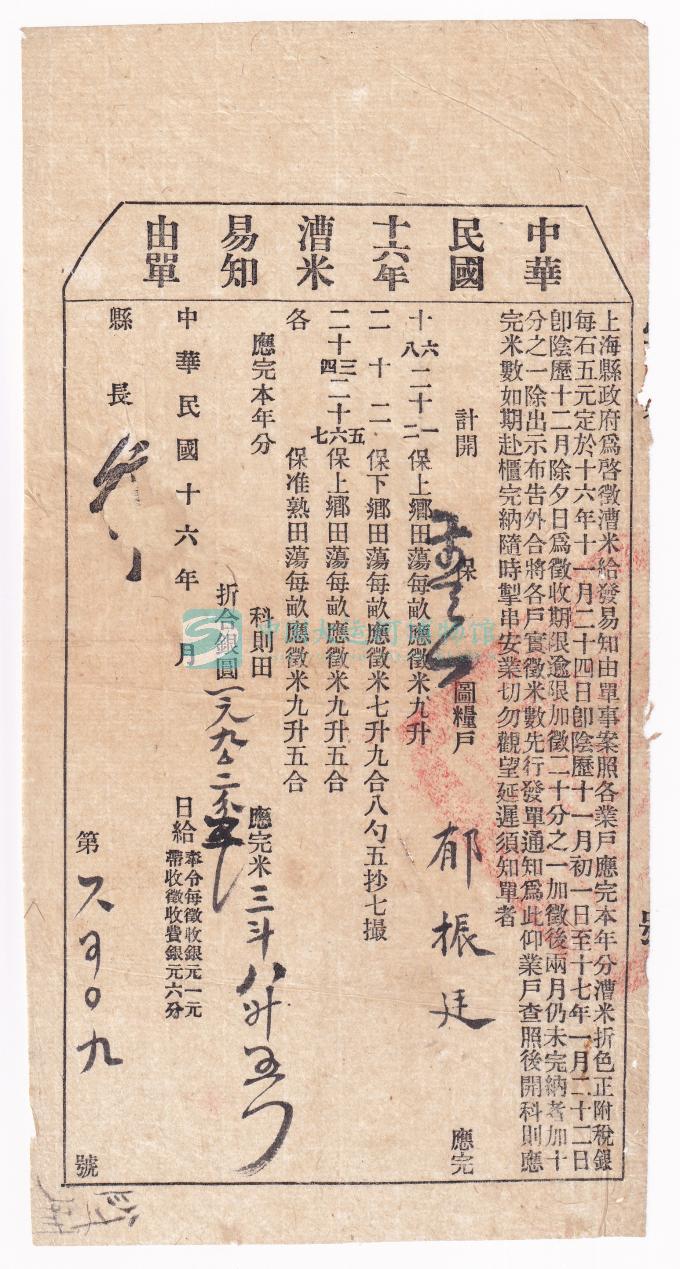 中華民國十六年漕米易知由單
上海縣政府爲啓徵漕米給發易知由單事案照各業戶應完本年分漕米折色正附稅銀
每石五元定於十六年十一月二十四日卽陰歷十一月初一日至十七年一月二十二日
卽陰歷十二月除夕日爲徵收期限逾限加徵二十分之一加徵後兩月仍未完納者加十
分之一除出示布告外合將各戶實徵米數先行發單通知爲此仰業戶查照後開科則應
完米數如期赴櫃完納隨時掣串安業切勿觀望延遲須知單者
計開 保 圖糧戶 郁振廷 應完
十六八二十一二保上鄉田蕩每畝應徵米九升
二十二保下鄉田蕩每畝應徵米七升九合八勺五抄七撮
二十三四二十五六七保上鄉田蕩每畝應徵米九升五合
各保准熟田蕩每畝應徵米九升五合
應完本年分 科則田 應完米三斗八升五
折合銀圓一元九
中華民國十六年 月 日給
奉令每徵收銀元一元
帶收徵收費銀元六分
縣長
第 九 號
中国大运河博物馆